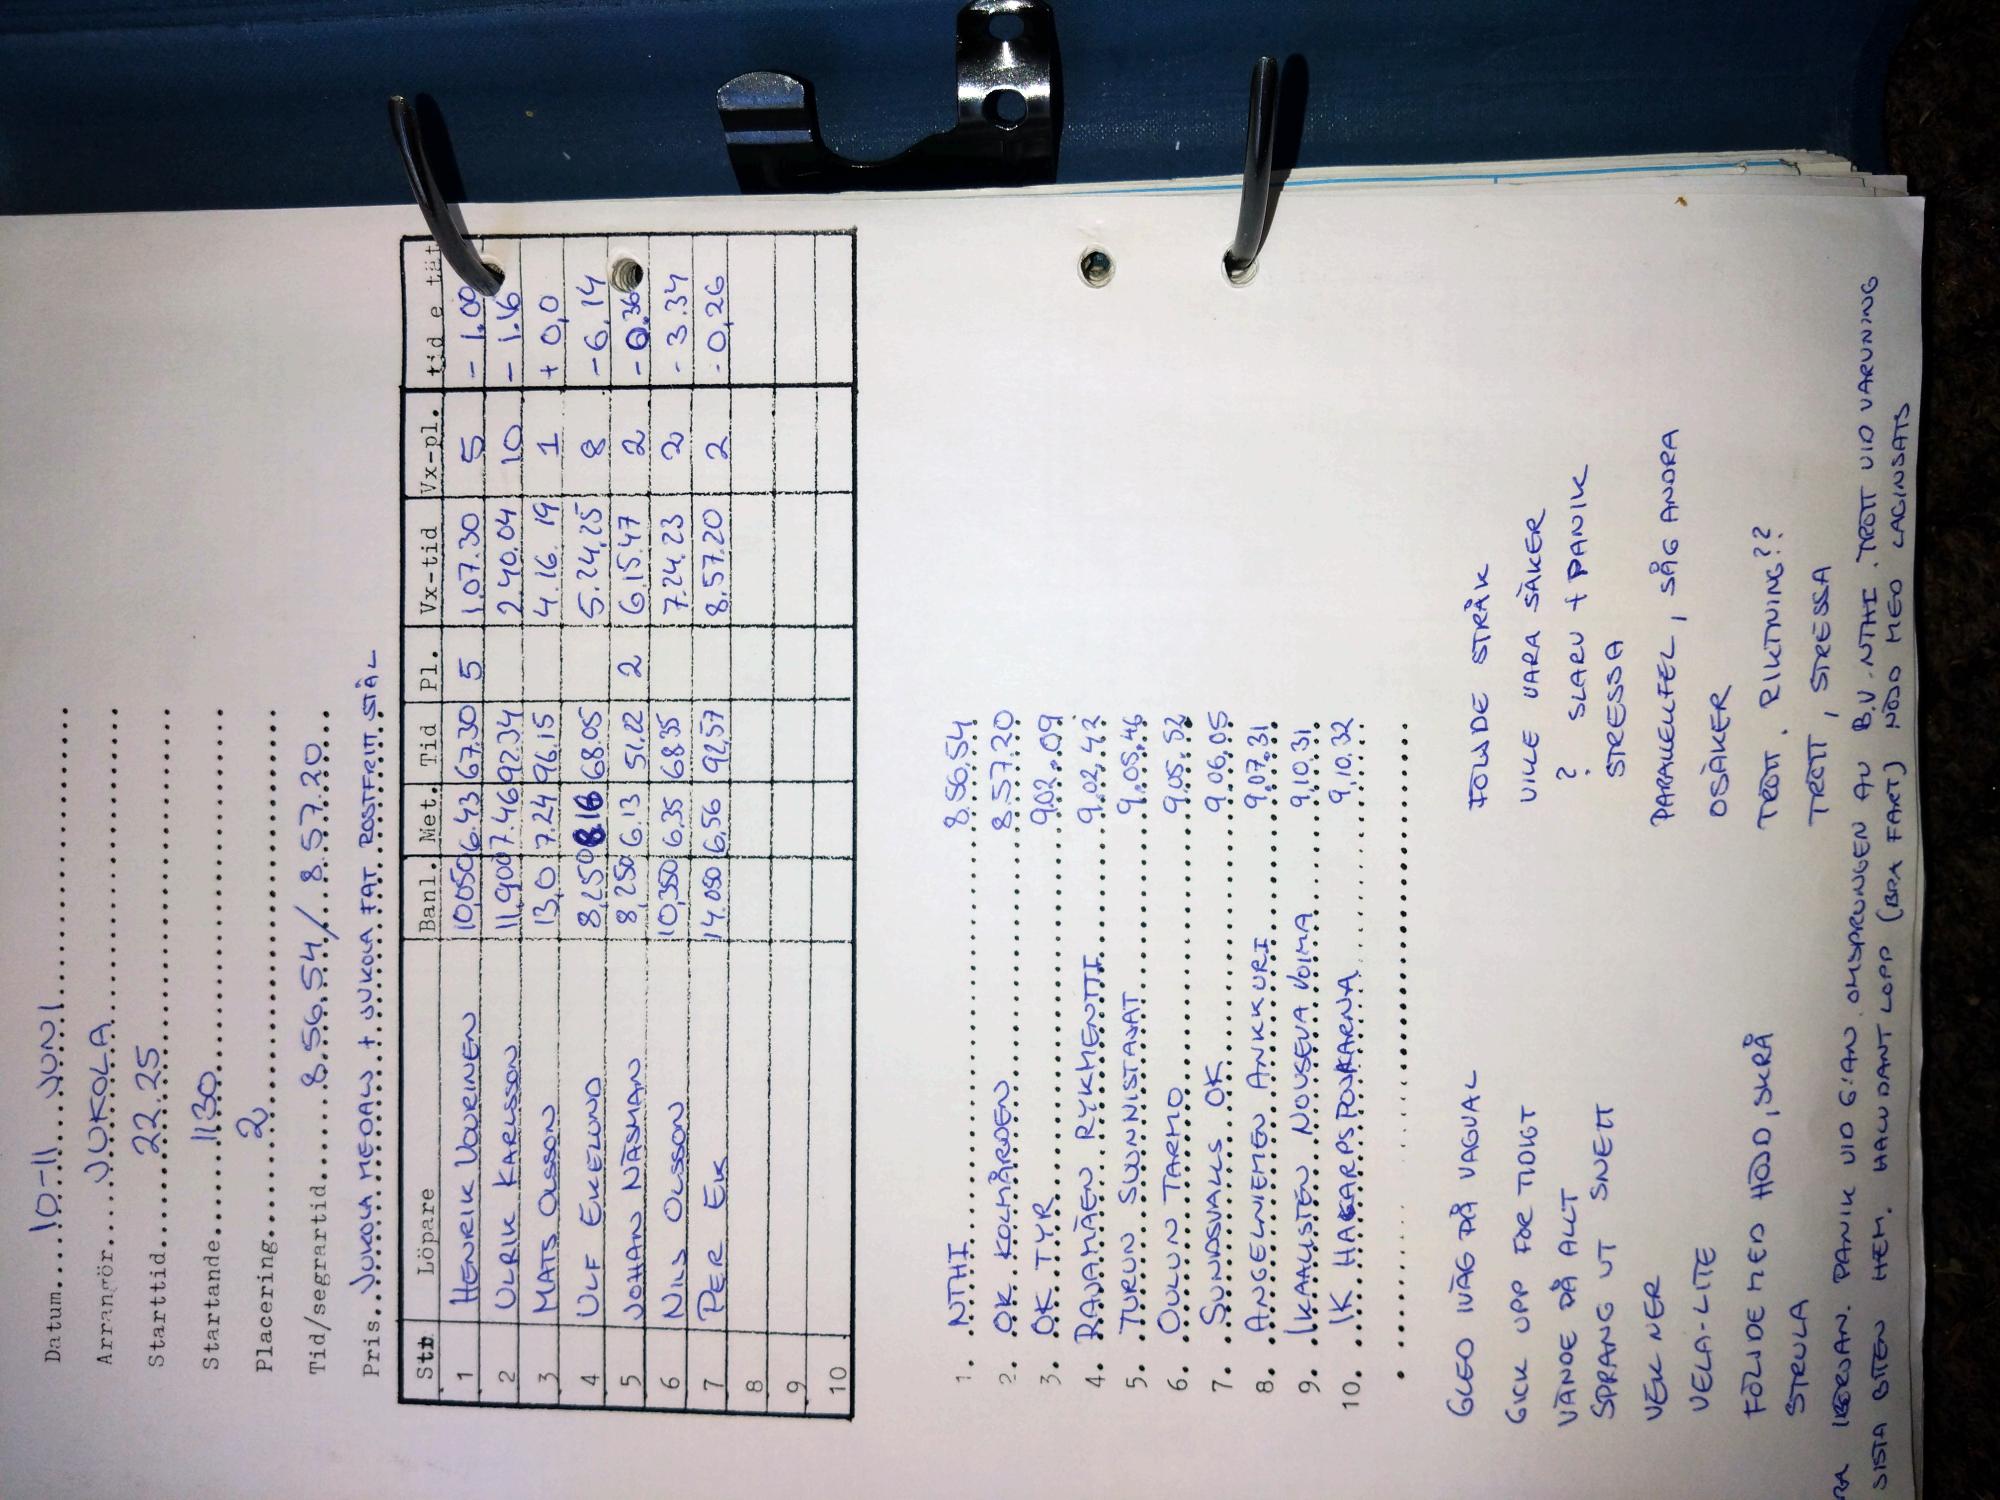 Datum....10-11 JUNI
Arrangör....JUKOLA
Starttid....22.25
Startande....1130
Placering....2
Tid/segrartid....8.56.54 / 8.57.20
Pris..JUKOLA MEDALJ + JUKOLA FAT ROSTFRITT STÅL
Str Löpare Banl. Met. Tid Pl. Vx-tid Vx-pl. tid e tät
1 HENRIK VOURINEN 10,050 6.43 67.30 5 1.07.30 5 -1.00
2 ULRIK KARLSSON 11,900 7.46 92.34 2.40.04 10 -1.16
3 MATS OLSSON 13,0 7.24 96.15 4.16.19 1 +0,0
4 ULF EKELUND 8,250 8.16 68.05 5.24.25 8 -6,14
5 JOHAN NÄSMAN 8,250 6.13 51.22 2 6.15.47 2 -0.36
6 NILS OLSSON 10,350 6.35 68.35 7.24.23 2 -3.34
7 PER EK 14.050 6,56 92,57 8.57.20 2 -0,26
8
9
10
1. NTHI 8.56.54
2. OK KOLMÅRDEN 8.57.20
3. OK TYR 9.02.09
4. RAJAMÄEN RYKMENTTI 9.02.42
5. TURUN SUUNNISTAJAT 9.05.46
6. OULUN TARMO 9.05.52
7. SUNDSVALLS OK 9.06.05
8. ANGELNIEMEN ANKKURI 9.07.31
9. IKAALISTEN NOUSEVA VOIMA 9.10.31
10. IK HAKARPSPOJKARNA 9.10.32
GLED IVÄG PÅ VAGVAL FÖLJDE STRÅK
GICK UPP FÖR TIDIGT VILLE VARA SÄKER
VÄNDE PÅ ALLT ? SLARV + PANIK
SPRANG UT SNETT STRESSA
VEK NER PARALLELFEL, SÅG ANDRA
VELA-LITE OSÄKER
FÖLJDE MED HÖJD, SKRÅ TRÖTT, RIKTNING??
STRULA TRÖTT, STRESSA
PANIK VID 6:AN. OMSPRUNGEN AV B.V. NTHI. TRÖTT VID VARVNING
SISTA BITEN HEM. HALVDANT LOPP (BRA FART) NÖJD MED LAGINSATS